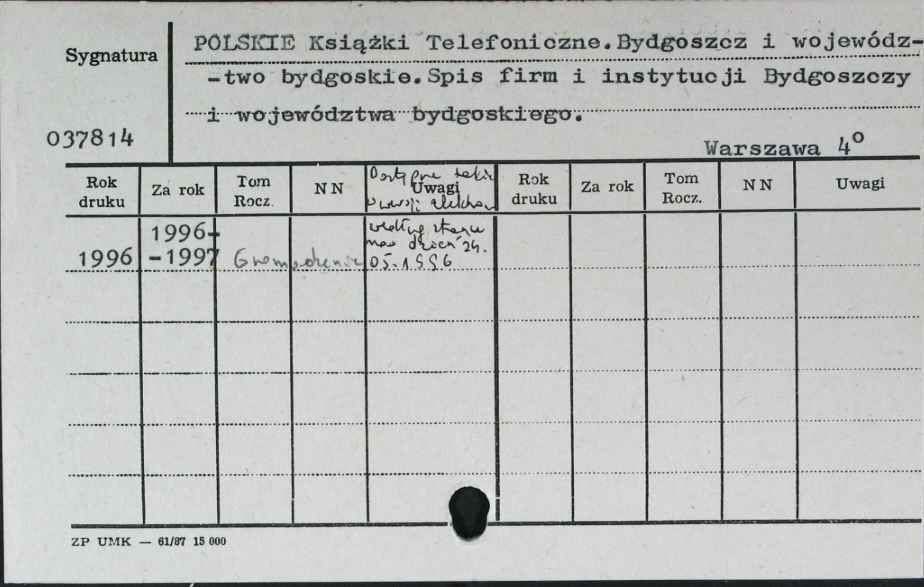 Sygnatura
037814
POLSKIE Książki Telefoniczne.Bydgoszcz i wojewódz-
-two bydgoskie.Spis firm i instytucji Bydgoszczy
i województwa bydgoskiego.
Warszawa 4°
Rok druku Za rok Tom Rocz. NN Uwagi Rok druku Za rok Tom Rocz. NN Uwagi
Dostępne także
w wersji
1996-
1996 -1997 Gromadzenie
według stanu
na dzień 24.
05.1996
ZP UMK — 61/87 15 000